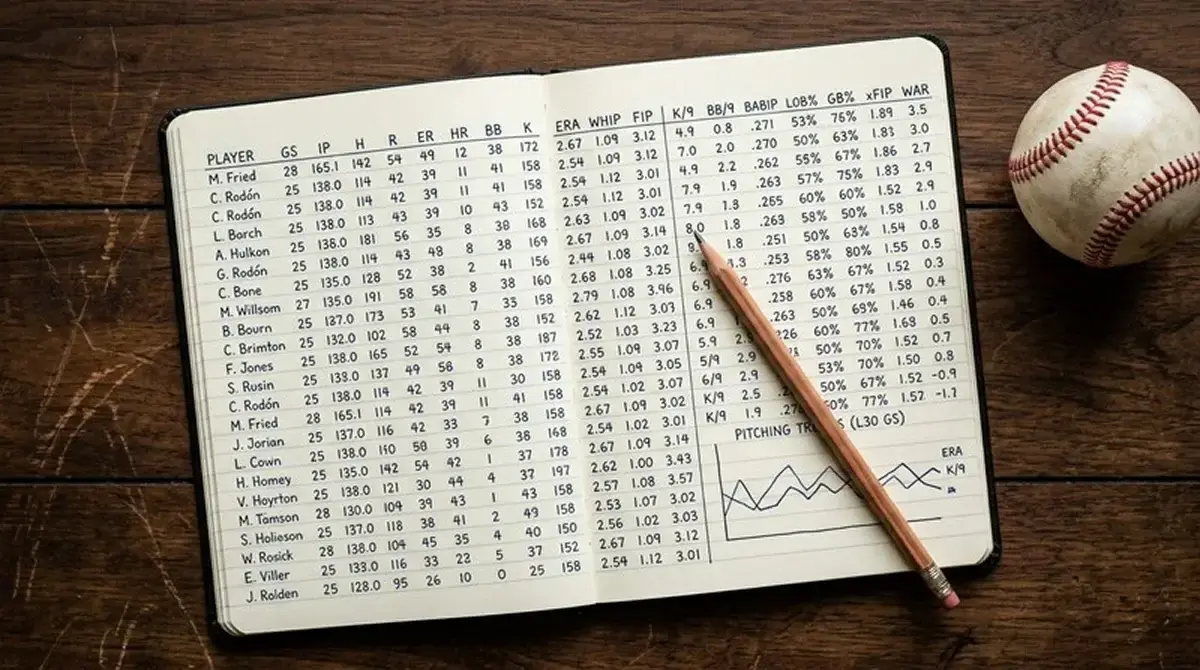 PLAYER GS IP H R ER HR BB K
M. Fried 28 165.1 142 54 49 12 38 172
C. Rodón 25 138.0 114 42 39 11 41 158
C. Rodón 25 138.0 114 42 39 11 41 158
L. Borch 25 138.0 113 43 39 10 43 152
A. Hulkon 25 138.0 181 56 35 8 38 168
G. Rodón 25 138.0 114 43 48 8 38 169
C. Bone 25 135.0 128 52 38 2 41 156
M. Willsom 27 135.0 191 58 58 8 38 160
B. Bourn 25 137.0 173 53 41 7 33 158
C. Brimton 25 132.0 102 58 44 8 38 152
F. Jones 25 138.0 165 52 54 8 38 187
S. Rusin 25 138.0 137 49 58 8 38 172
C. Rodón 25 138.0 114 42 39 11 30 158
M. Fried 28 165.1 114 42 39 11 41 158
J. Jorian 25 137.0 116 42 33 7 38 158
L. Cown 25 138.0 110 58 39 6 38 168
H. Homey 25 135.0 142 54 42 1 37 178
V. Hoyrton 25 138.0 121 30 44 4 37 197
M. Tamson 28 130.0 104 39 43 1 43 158
S. Holieson 25 137.0 118 38 41 2 49 158
W. Rosick 28 138.0 104 45 35 4 40 150
E. Viller 25 133.0 116 33 22 5 37 152
J. Rolden 25 128.0 95 26 10 0 25 158
ERA WHIP FIP
2.67 1.09 3.12
2.54 1.09 3.12
2.54 1.12 3.01
2.54 1.12 3.01
2.63 1.09 3.02
2.67 1.09 3.14
2.44 1.08 3.02
2.68 1.08 3.25
2.79 1.08 3.96
2.62 1.12 3.03
2.52 1.03 3.23
2.55 1.09 3.07
2.54 1.09 3.05
2.54 1.02 3.07
2.67 1.09 3.02
2.54 1.02 3.01
2.67 1.09 3.14
2.62 1.00 3.43
2.57 1.08 3.57
2.53 1.07 3.02
2.56 1.02 3.03
2.67 1.09 3.12
2.54 1.12 3.01
K/9 BB/9 BABIP LOB% GB% xFIP WAR
4.9 0.8 .271 53% 76% 1.89 3.5
7.0 2.0 .270 50% 63% 1.83 3.0
4.9 2.2 .262 55% 67% 1.86 2.7
7.9 1.9 .263 57% 75% 1.83 2.9
7.9 1.8 .265 60% 60% 1.52 2.9
8.0 1.8 .263 58% 50% 1.58 1.0
1.8 .251 50% 63% 1.54 0.8
6.9 .253 58% 80% 1.55 0.5
6.9 .276 63% 67% 1.52 0.3
6.9 .258 60% 67% 1.58 0.4
6.9 .263 50% 69% 1.46 0.4
5.9 60% 77% 1.63 0.5
5/9 2.9 50% 70% 1.52 0.7
6/9 2.9 53% 70% 1.50 0.8
K/9 2.5 50% 67% 1.52 -0.9
K/9 1.9 77% 1.52 -1.7
PITCHING (L30 GS)
ERA
K/9